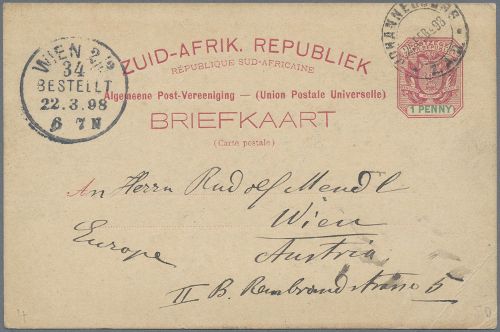 ZUID-AFRIK. REPUBLIEK
RÉPUBLIQUE SUD-AFRICAINE
Algemeene Post-Vereeniging — (Union Postale Universelle)
BRIEFKAART
(Carte postale)
1 PENNY
JOHANNESBURG
WIEN
34
BESTELLT
22.3.98
6 7 N
An Herrn Rudolf Mendl
Wien
Europe
Austria
II B. Rembrandstrasse 5